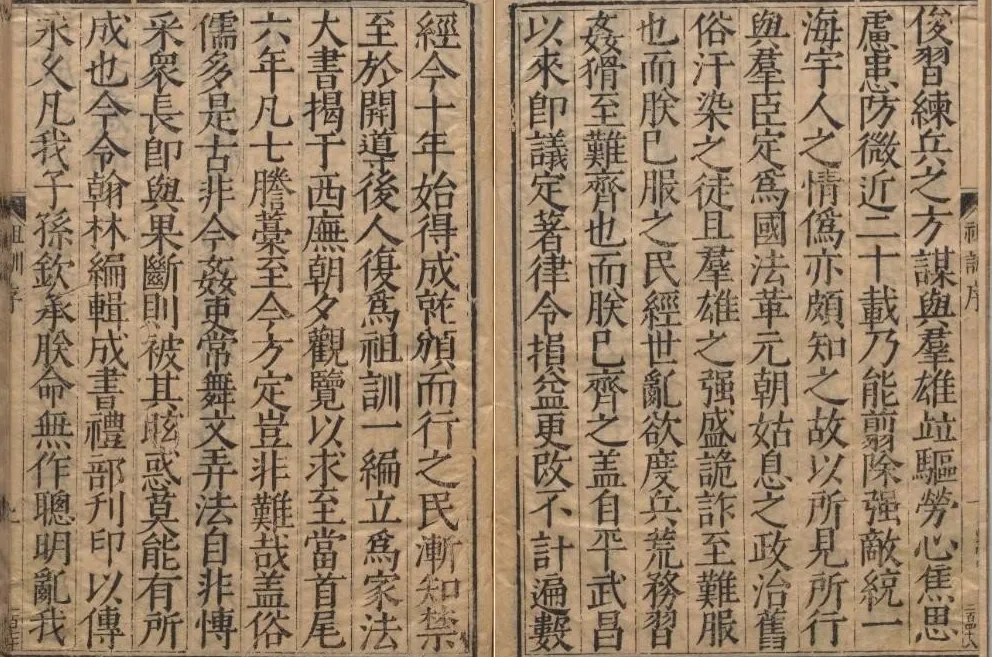 俊習練兵之方謀與羣雄並驅勞心焦思
慮患防微近二十載乃能翦除强敵統一
海宇人之情僞亦頗知之故以所見所行
與羣臣定爲國法革元朝姑息之政治舊
俗汙染之徒且羣雄之强盛詭詐至難服
也而朕已服之民經世亂欲度兵荒務習
姦猾至難齊也而朕已齊之盖自平武昌
以來即議定著律令損益更改不計遍數
經今十年始得成就頒而行之民漸知禁
至於開導後人復爲祖訓一編立爲家法
大書揭于西廡朝夕觀覽以求至當首尾
六年凡七謄藁至今方定豈非難哉盖俗
儒多是古非今姦吏常舞文弄法自非慱
采衆長即與果斷則被其眩惑莫能有所
成也今令翰林編輯成書禮部刊印以傳
永久凡我子孫欽承朕命無作聰明亂我
祖訓序